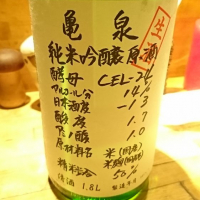 生
亀泉
純米吟醸原酒
酵母 CEL-24
アルコール分 14%
日本酒度 -13
酸度 1.7
アミノ酸 1.0
原材料名 米(国産)
米麹(国産米)
精米歩合 50%
清酒 1.8L 製造年月